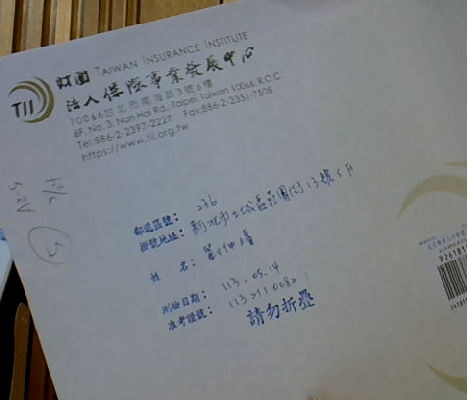 TII
財團 TAIWAN INSURANCE INSTITUTE
法人保險事業發展中心
10066台北市南海路3號6樓
6F, No. 3, Nan Hai Rd., Taipei, Taiwan 10066, R.O.C.
Tel:886-2-2397-2227 Fax:886-2-2351-7508
https://www.tii.org.tw
5
郵遞區號: 236
掛號地址: 新北市土城區莊園街13號5F
姓 名:
測驗日期: 113.05.14
准考證號: 113211008
請勿折疊